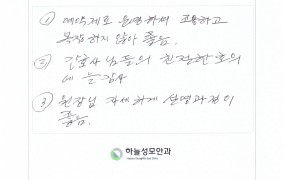 ① 예약제로 운영하셔 조용하고
복잡하지 않아 좋음.
② 간호사님들의 친절한 호의
에 늘 감사
③ 원장님 자세하게 설명과정이
좋음.
하늘성모안과